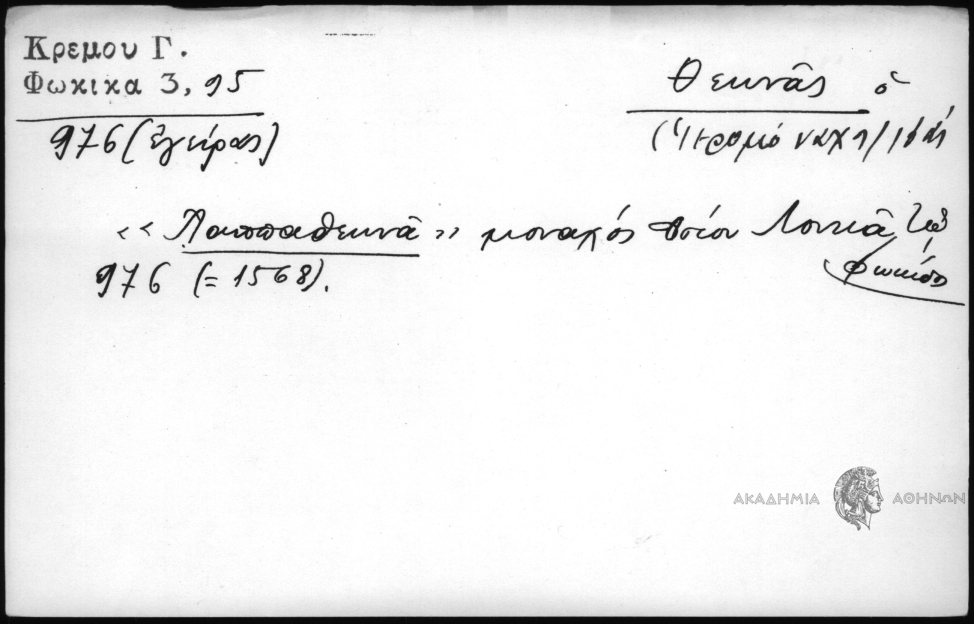 Κρεμου Γ.
Φωκικα 3, 95
976 (Ἐγείρας)
Θεκνᾶς ὁ
(Ἱερομόναχη/
« Παππαθεκνᾶ » μοναχός Ὁσίου Λουκᾶ
Φωκίδο
976 (= 1568).
ΑΚΑΔΗΜΙΑ ΑΘΗΝΩΝ